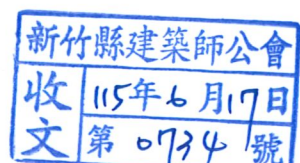 新竹縣建築師公會
收文
115年6月17日
第0734號